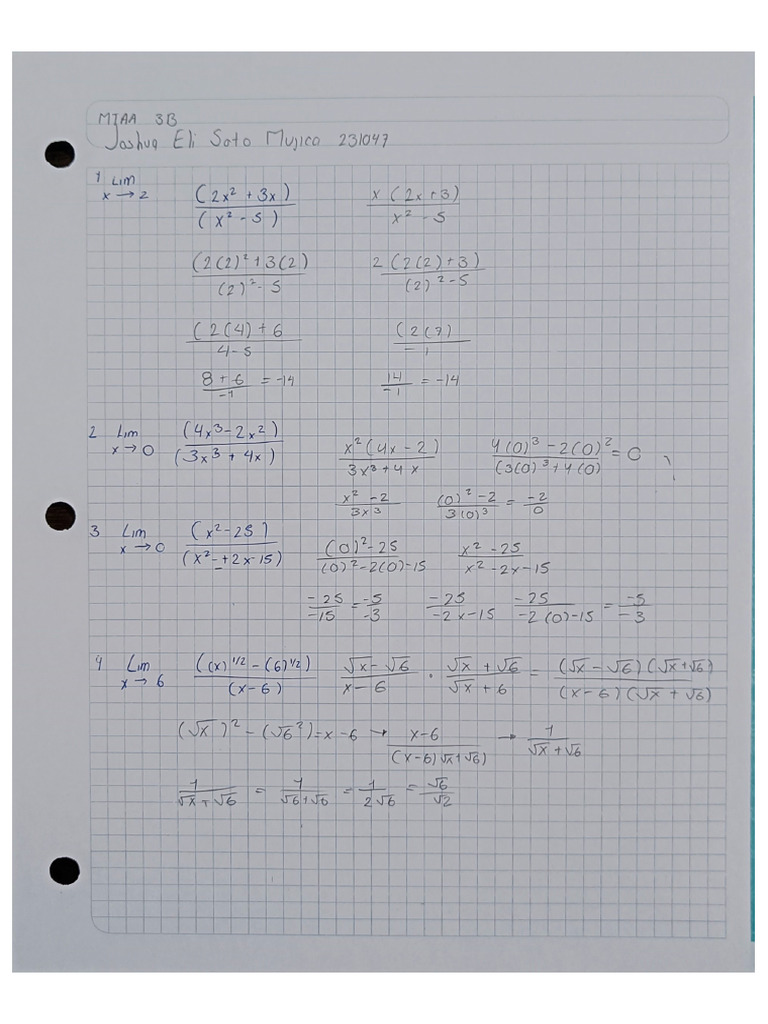 MIAA 3B
Joshua Eli Soto Mujica 231047
1 Lim x→2 (2x² + 3x)/(x² - 5) x(2x+3)/x² - 5
(2(2)² + 3(2)/(2)² - 5 2(2(2)+3)/(2)² - 5
(2(4) + 6/4-5 (2(7)/-1
8+6/-1 = -14 14/-1 = -14
2 Lim x→0 (4x³-2x²)/(3x³ + 4x) x²(4x-2)/3x³+4x 4(0)³ - 2(0)²/(3(0)³ + 4(0) = 0
x² - 2/3x³ (0)² - 2/3(0)³ = -2/0
3 Lim x→0 (x²-25)/(x² - + 2x-15) (0)²-25/(0)²-2(0)-15 x² - 25/x² - 2x - 15
-25/-15 = -5/-3 -25/-2x-15 -25/-2(0)-15 = -5/-3
4 Lim x→6 ((x)^1/2 - (6)^1/2)/(x-6) √x-√6/x-6 · √x + √6/√x + 6 = (√x - √6)(√x+√6)/(x-6)(√x + √6)
(√x)² - (√6²) = x-6 → x-6/(x-6)√x+√6) → 1/√x+√6
1/√x+√6 = 1/√6+√6 = 1/2√6 = √6/√2